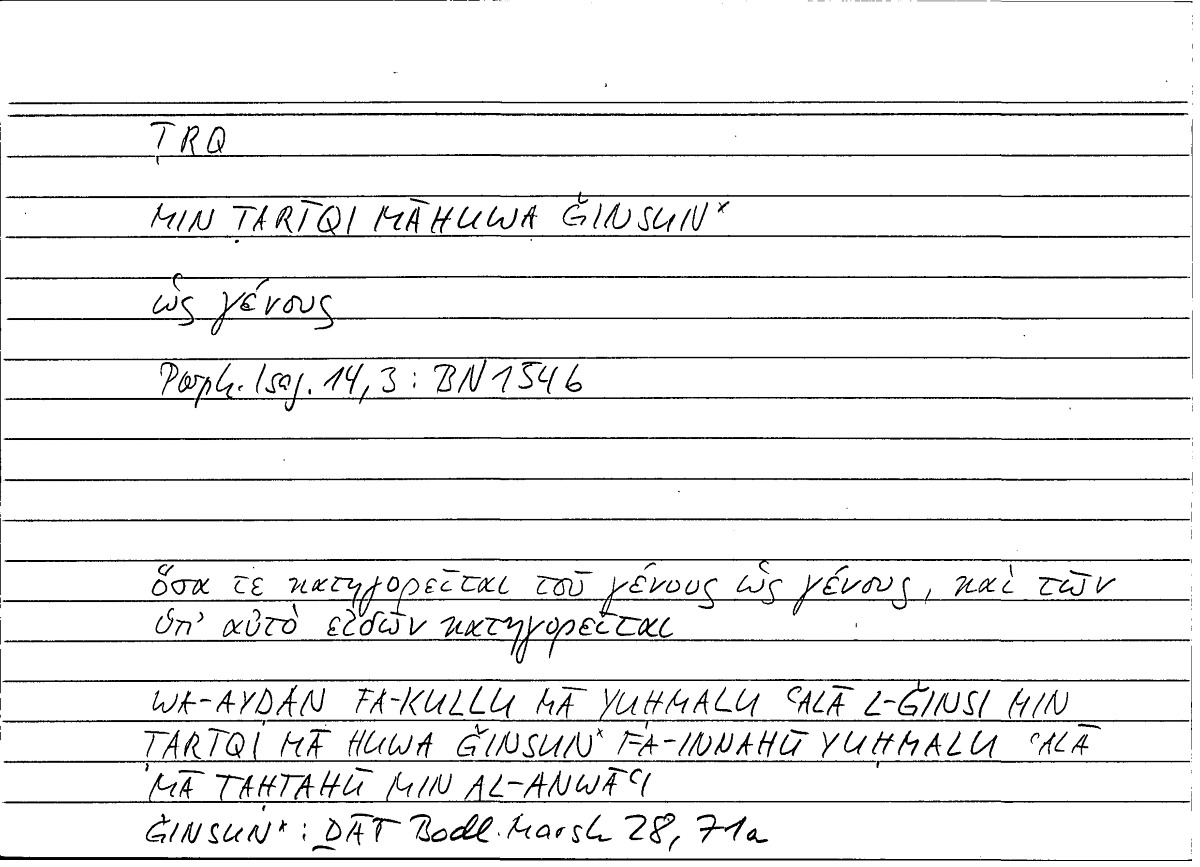 ṬRQ
MIN ṬARĪQI MĀHUWA ǦINSUN*
ὡς γένους
Porph. Isag. 14,3 : BN 1546
ὅσα τε κατηγορεῖται τοῦ γένους ὡς γένους, καὶ τῶν
ὑπ' αὐτὸ εἰδῶν κατηγορεῖται
WA-AYḌAN FA-KULLU MĀ YUḤMALU ʿALĀ L-ǦINSI MIN
ṬARĪQI MĀ HUWA ǦINSUN* FA-INNAHŪ YUḤMALU ʿALĀ
MĀ TAḤTAHŪ MIN AL-ANWĀʿI
ǦINSUN* : ḎĀT Bodl. Marsh 28, 71a